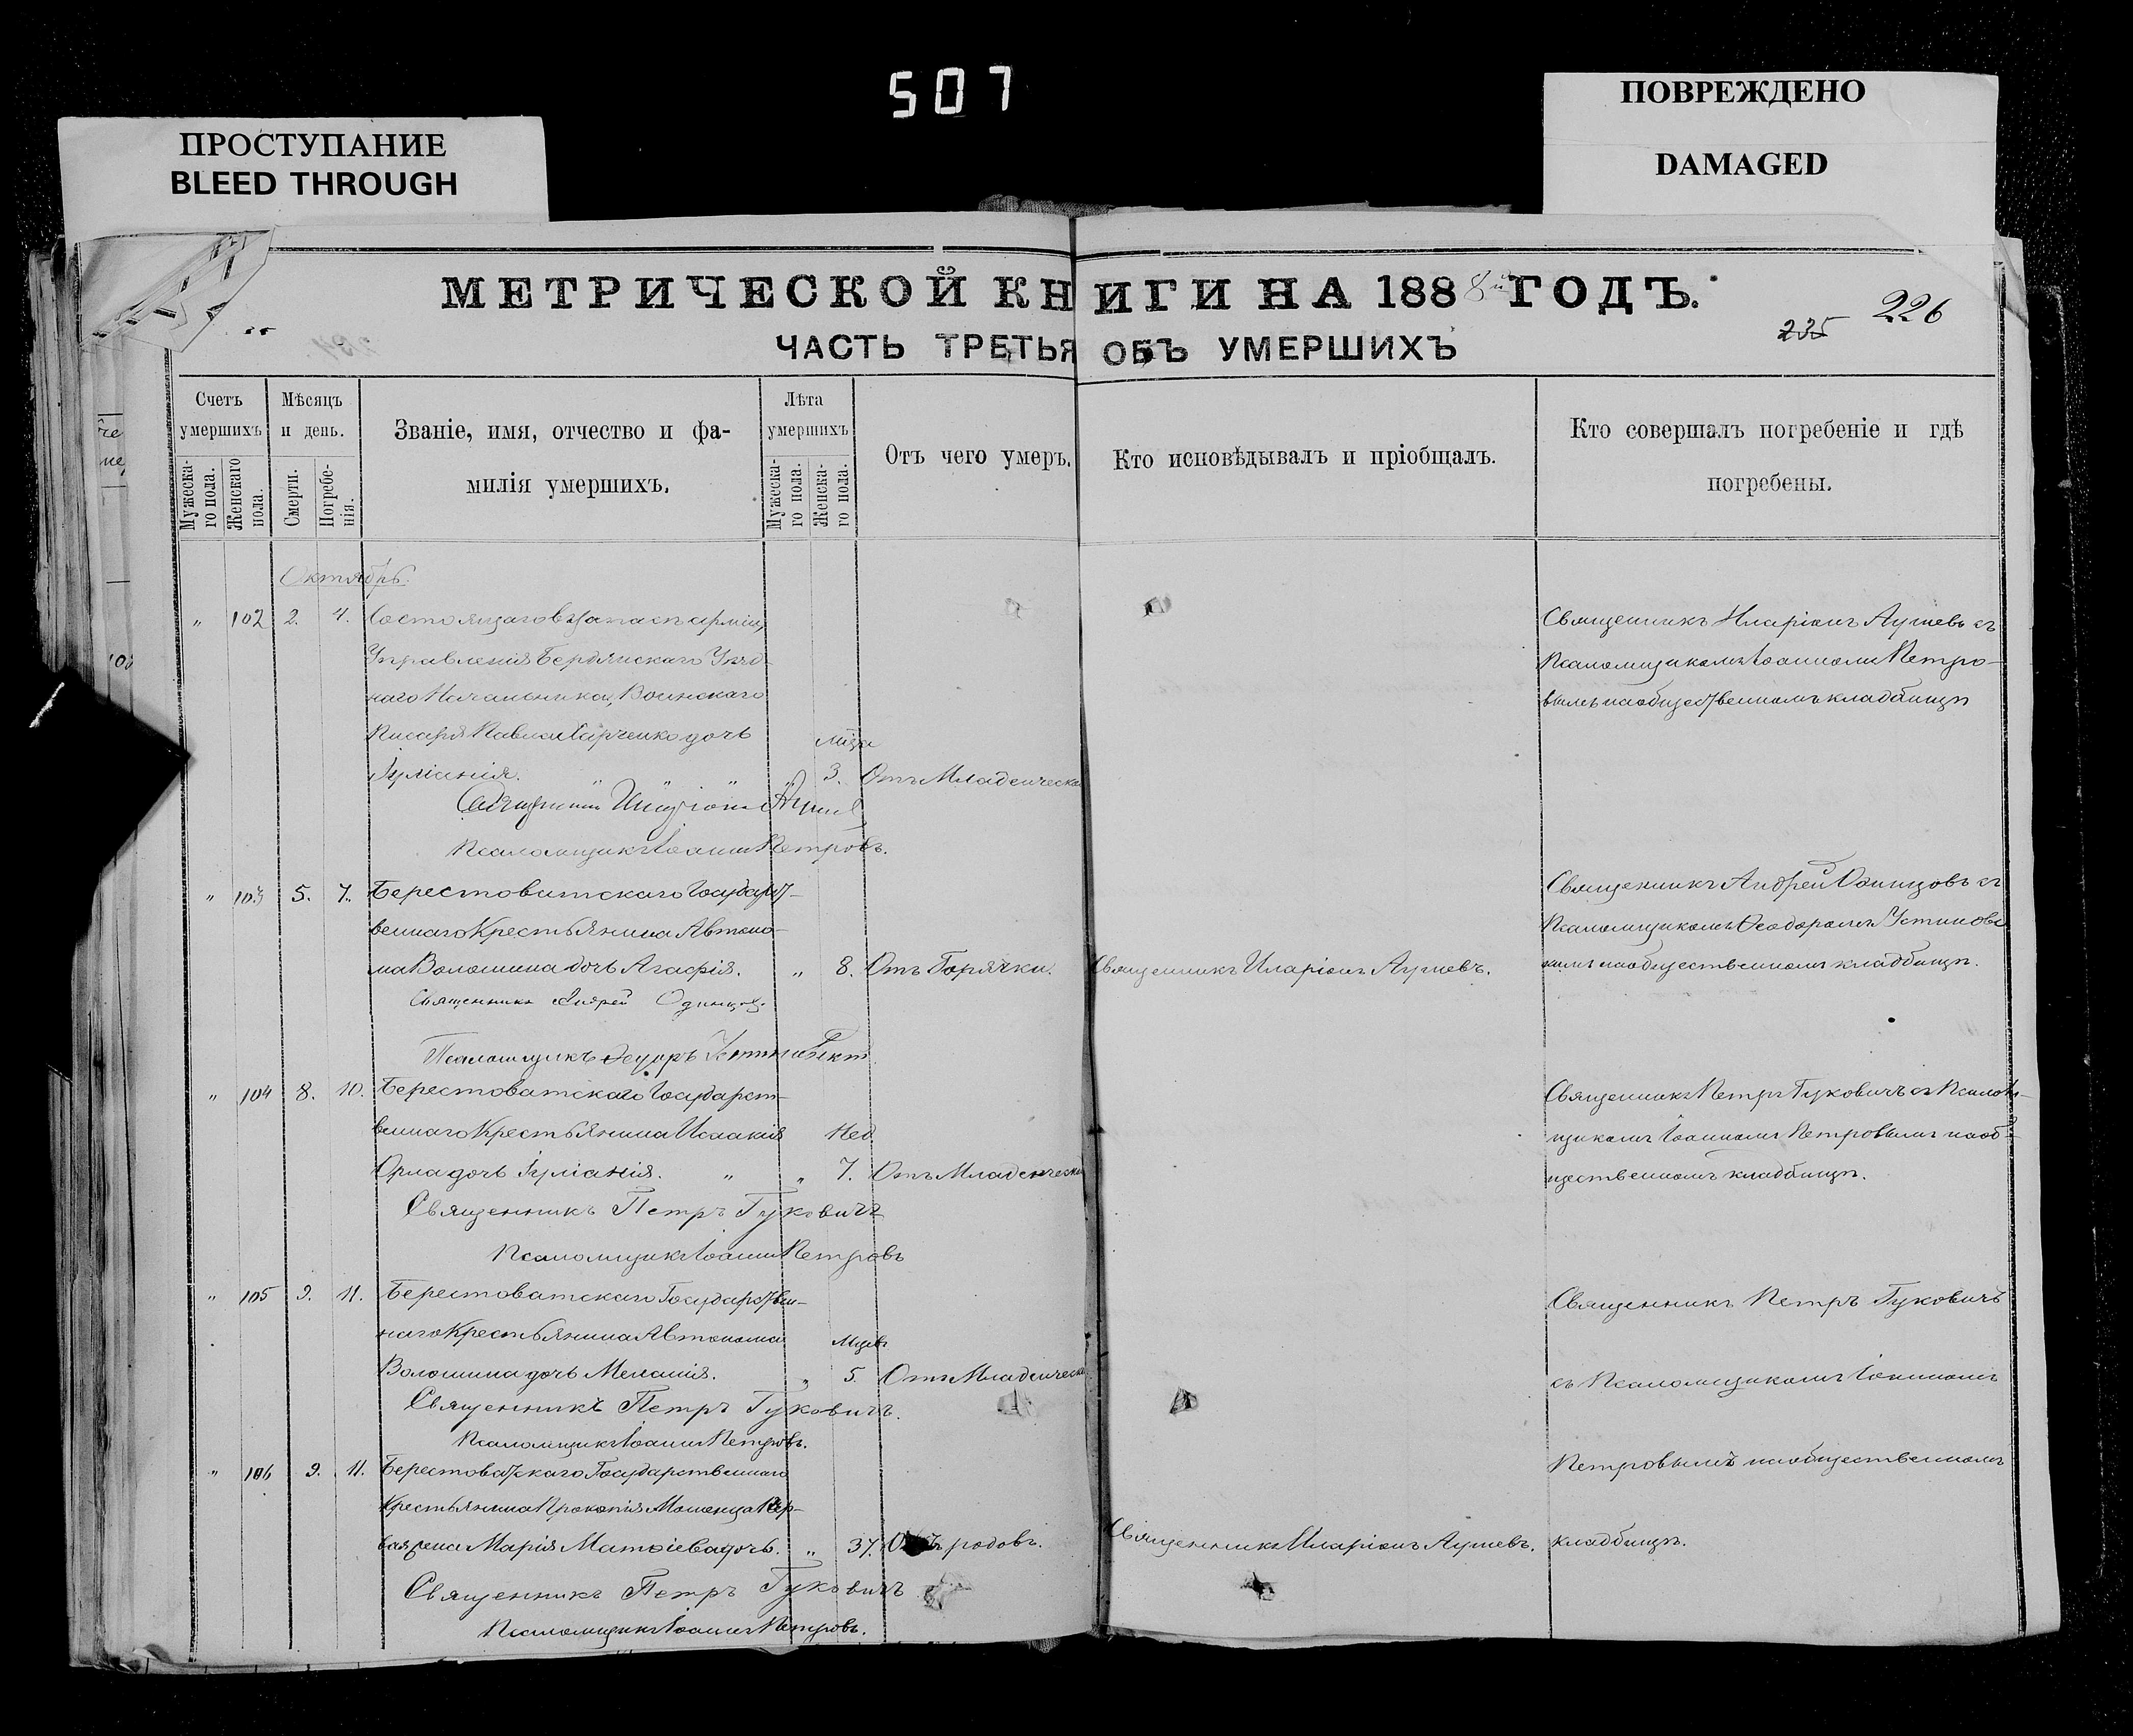 507
ПРОСТУПАНИЕ
BLEED THROUGH
ПОВРЕЖДЕНО
DAMAGED
МЕТРИЧЕСКОЙ КНИГИ НА 1888й ГОДЪ.
235 226
ЧАСТЬ ТРЕТЬЯ ОБЪ УМЕРШИХЪ
Счетъ умершихъ
Мужеска-го пола.
Женскаго пола.
Мѣсяцъ и день.
Смерти.
Погребе-нія.
Званіе, имя, отчество и фа-
милія умершихъ.
Лѣта умершихъ
Мужеска-го пола.
Женска-го пола.
Отъ чего умеръ.
Кто исповѣдывалъ и пріобщалъ.
Кто совершалъ погребеніе и гдѣ
погребены.
Октябрь.
" 102 2. 4. Состоящаго въ запасѣ арміи,
Управленія Бердянскаго Уѣзд-
наго Начальника, Воинскаго
Писаря Павла Харченко дочь
Іуліанія. " " " " 3. Отъ Младенческа
Священникъ Иларіонъ
Псаломщикъ Іоаннъ Петровъ.
Священникъ Иларіонъ съ
Псаломщикомъ Іоанномъ Петро-
вымъ на общественномъ кладбищѣ
" 103 5. 7. Берестоватскаго Государст-
веннаго Крестьянина Автоно-
ма Волошина дочь Агафія. " 8. Отъ Горячки. Священникъ Иларіонъ
Священникъ Андрей Одинцовъ
Псаломщикъ Ѳеодоръ
Священникъ Андрей Одинцовъ съ
Псаломщикомъ Ѳеодоромъ Устинов
на общественномъ кладбищѣ.
" 104 8. 10. Берестоватскаго Государст-
веннаго Крестьянина Исаакія Нед.
Орла дочь Іуліанія. " " 7. Отъ Младенческа
Священникъ Петръ Гуковичъ
Псаломщикъ Іоаннъ Петровъ
Священникъ Петръ Гуковичъ съ Псалом-
щикомъ Іоанномъ Петровымъ на об-
щественномъ кладбищѣ.
" 105 9. 11. Берестоватскаго Государствен-
наго Крестьянина Автонома Мцев.
Волошина дочь Меланія. " 5. Отъ Младенческа
Священникъ Петръ Гуковичъ.
Псаломщикъ Іоаннъ Петровъ.
" 106 9. 11. Берестоватскаго Государственнаго
Крестьянина Прокопія
жена Марія Матѳіева дочь. " 37. Отъ родовъ. Священникъ Иларіонъ
Священникъ Петръ Гуковичъ
Псаломщикъ Іоаннъ Петровъ.
Священникъ Петръ Гуковичъ
съ Псаломщикомъ Іоанномъ
Петровымъ на общественномъ
кладбищѣ.